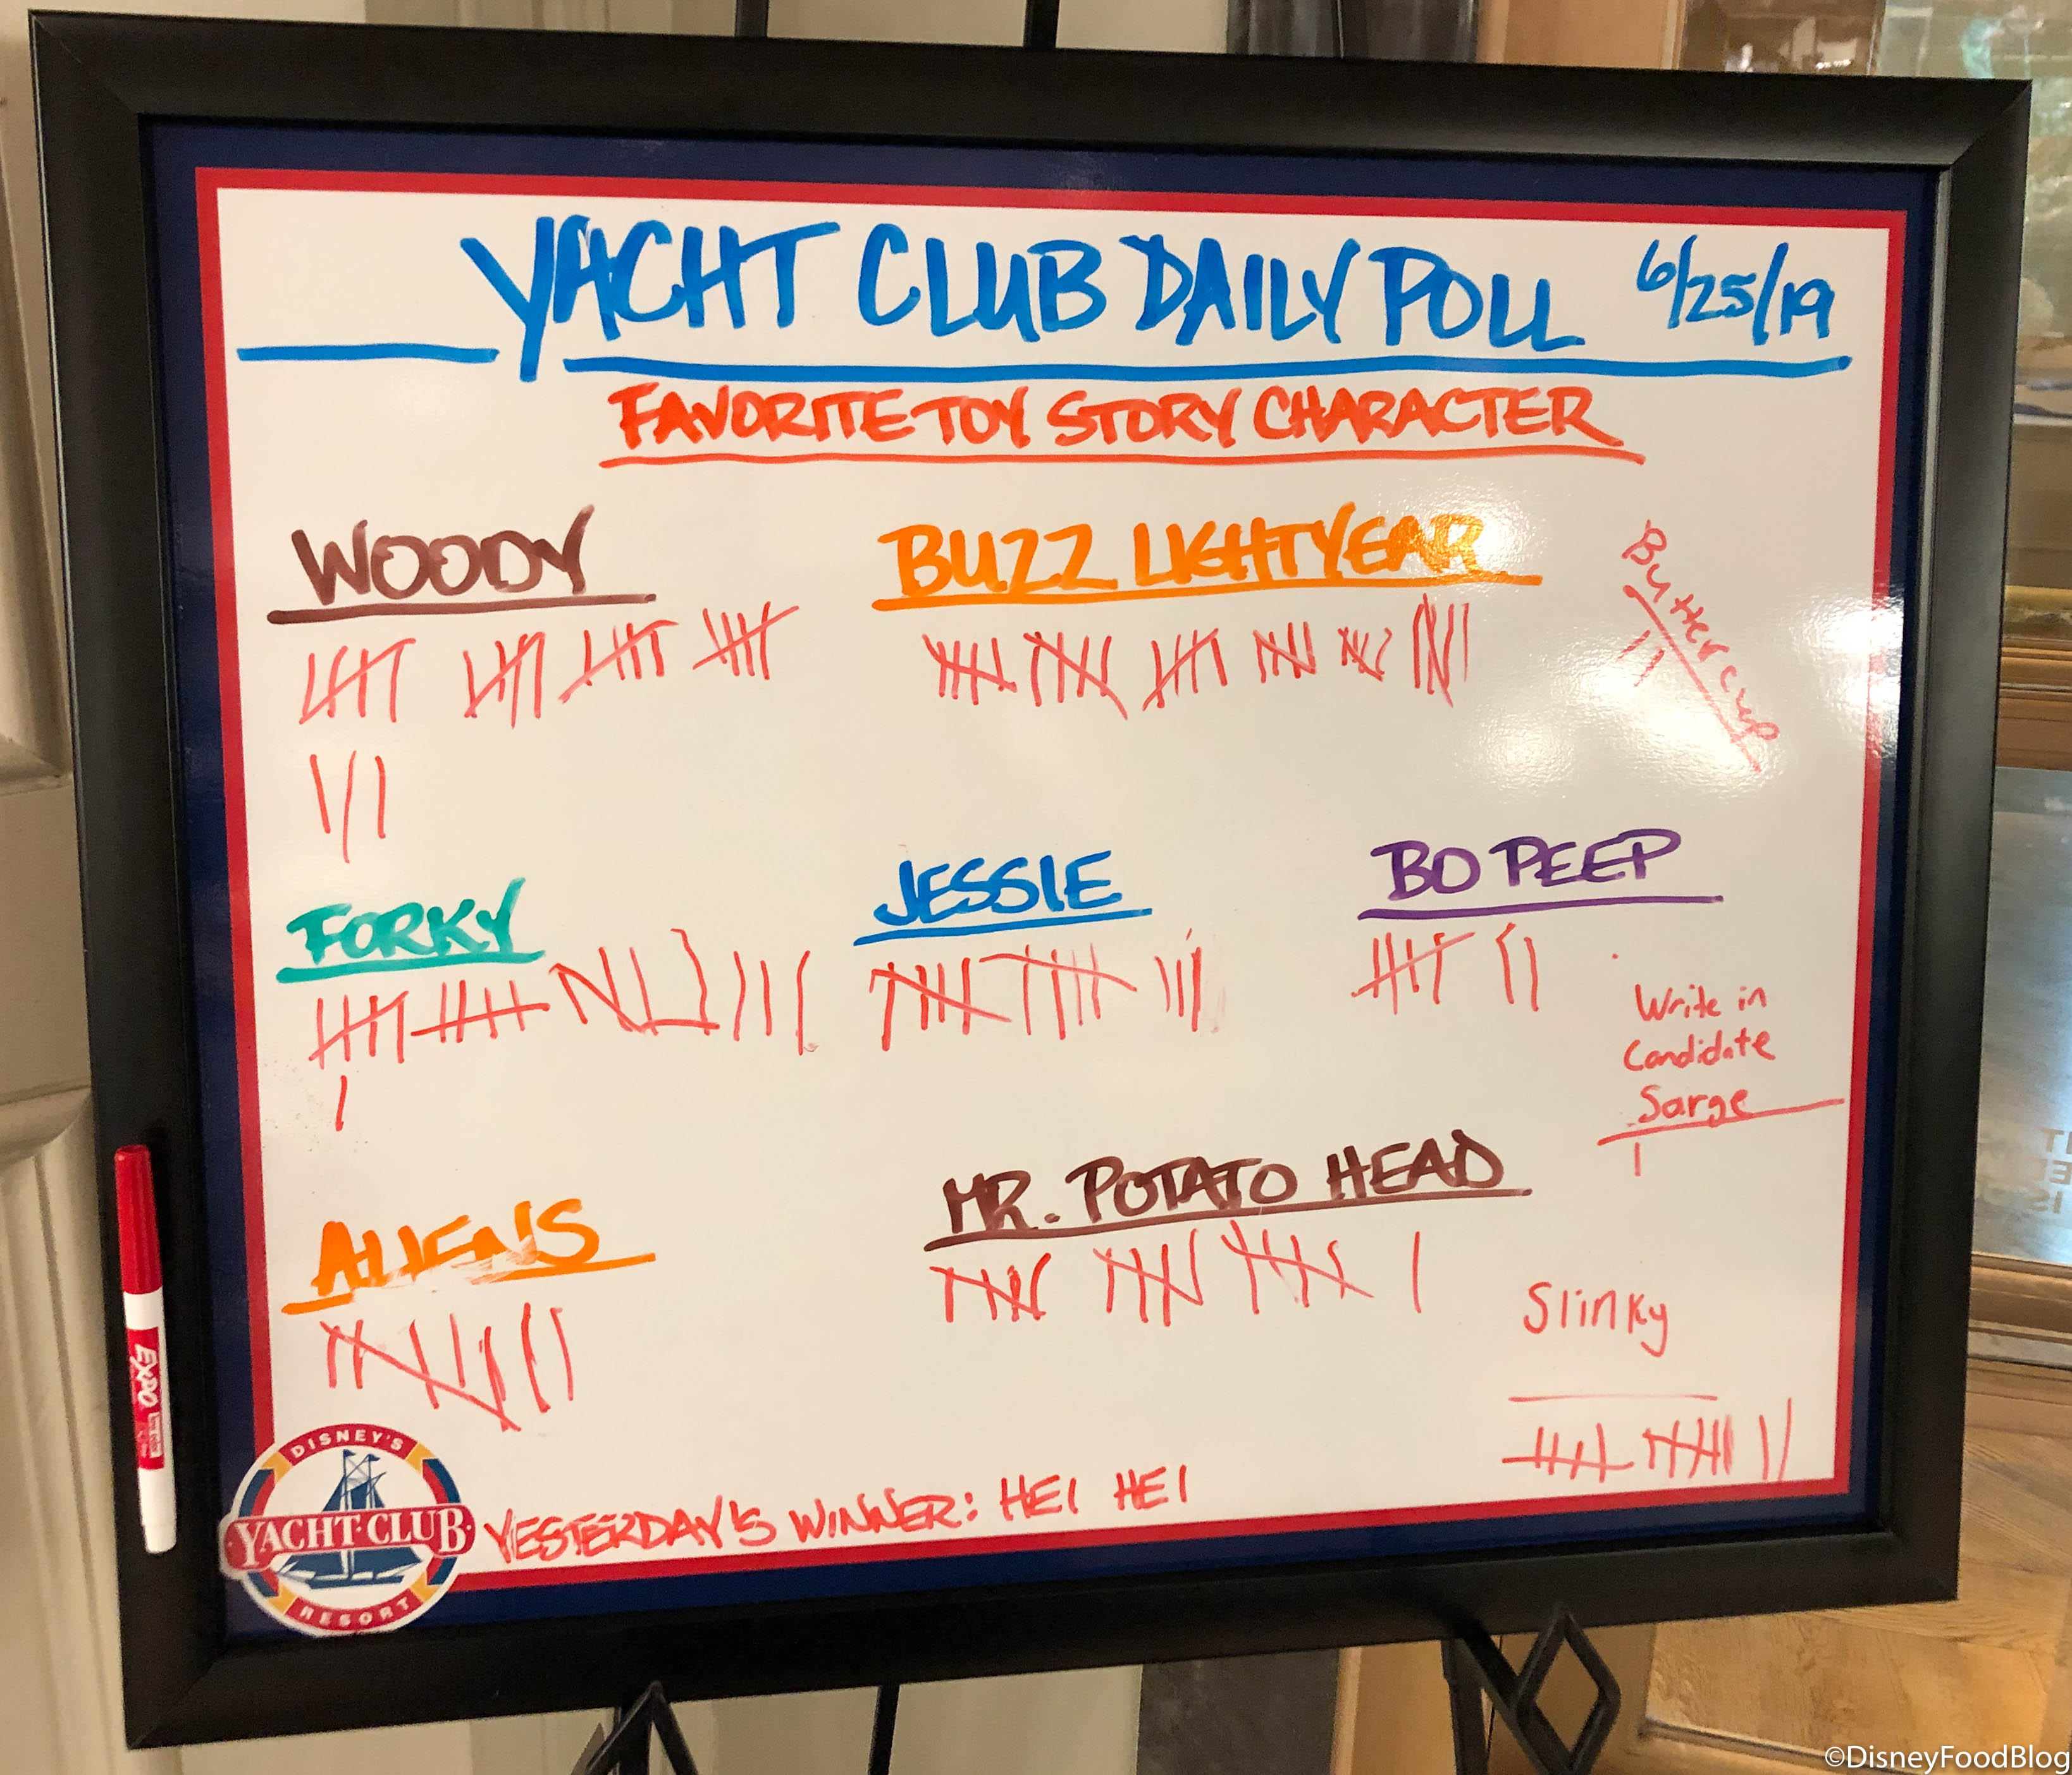 YACHT CLUB DAILY POLL 6/25/19
FAVORITE TOY STORY CHARACTER
WOODY
BUZZ LIGHTYEAR
Buttercup
FORKY
JESSIE
BO PEEP
Write in
Candidate
Sarge
ALIENS
MR. POTATO HEAD
Slinky
YESTERDAY'S WINNER: HEI HEI
DISNEY'S
YACHT CLUB
RESORT
EXPO
©DisneyFoodBlog